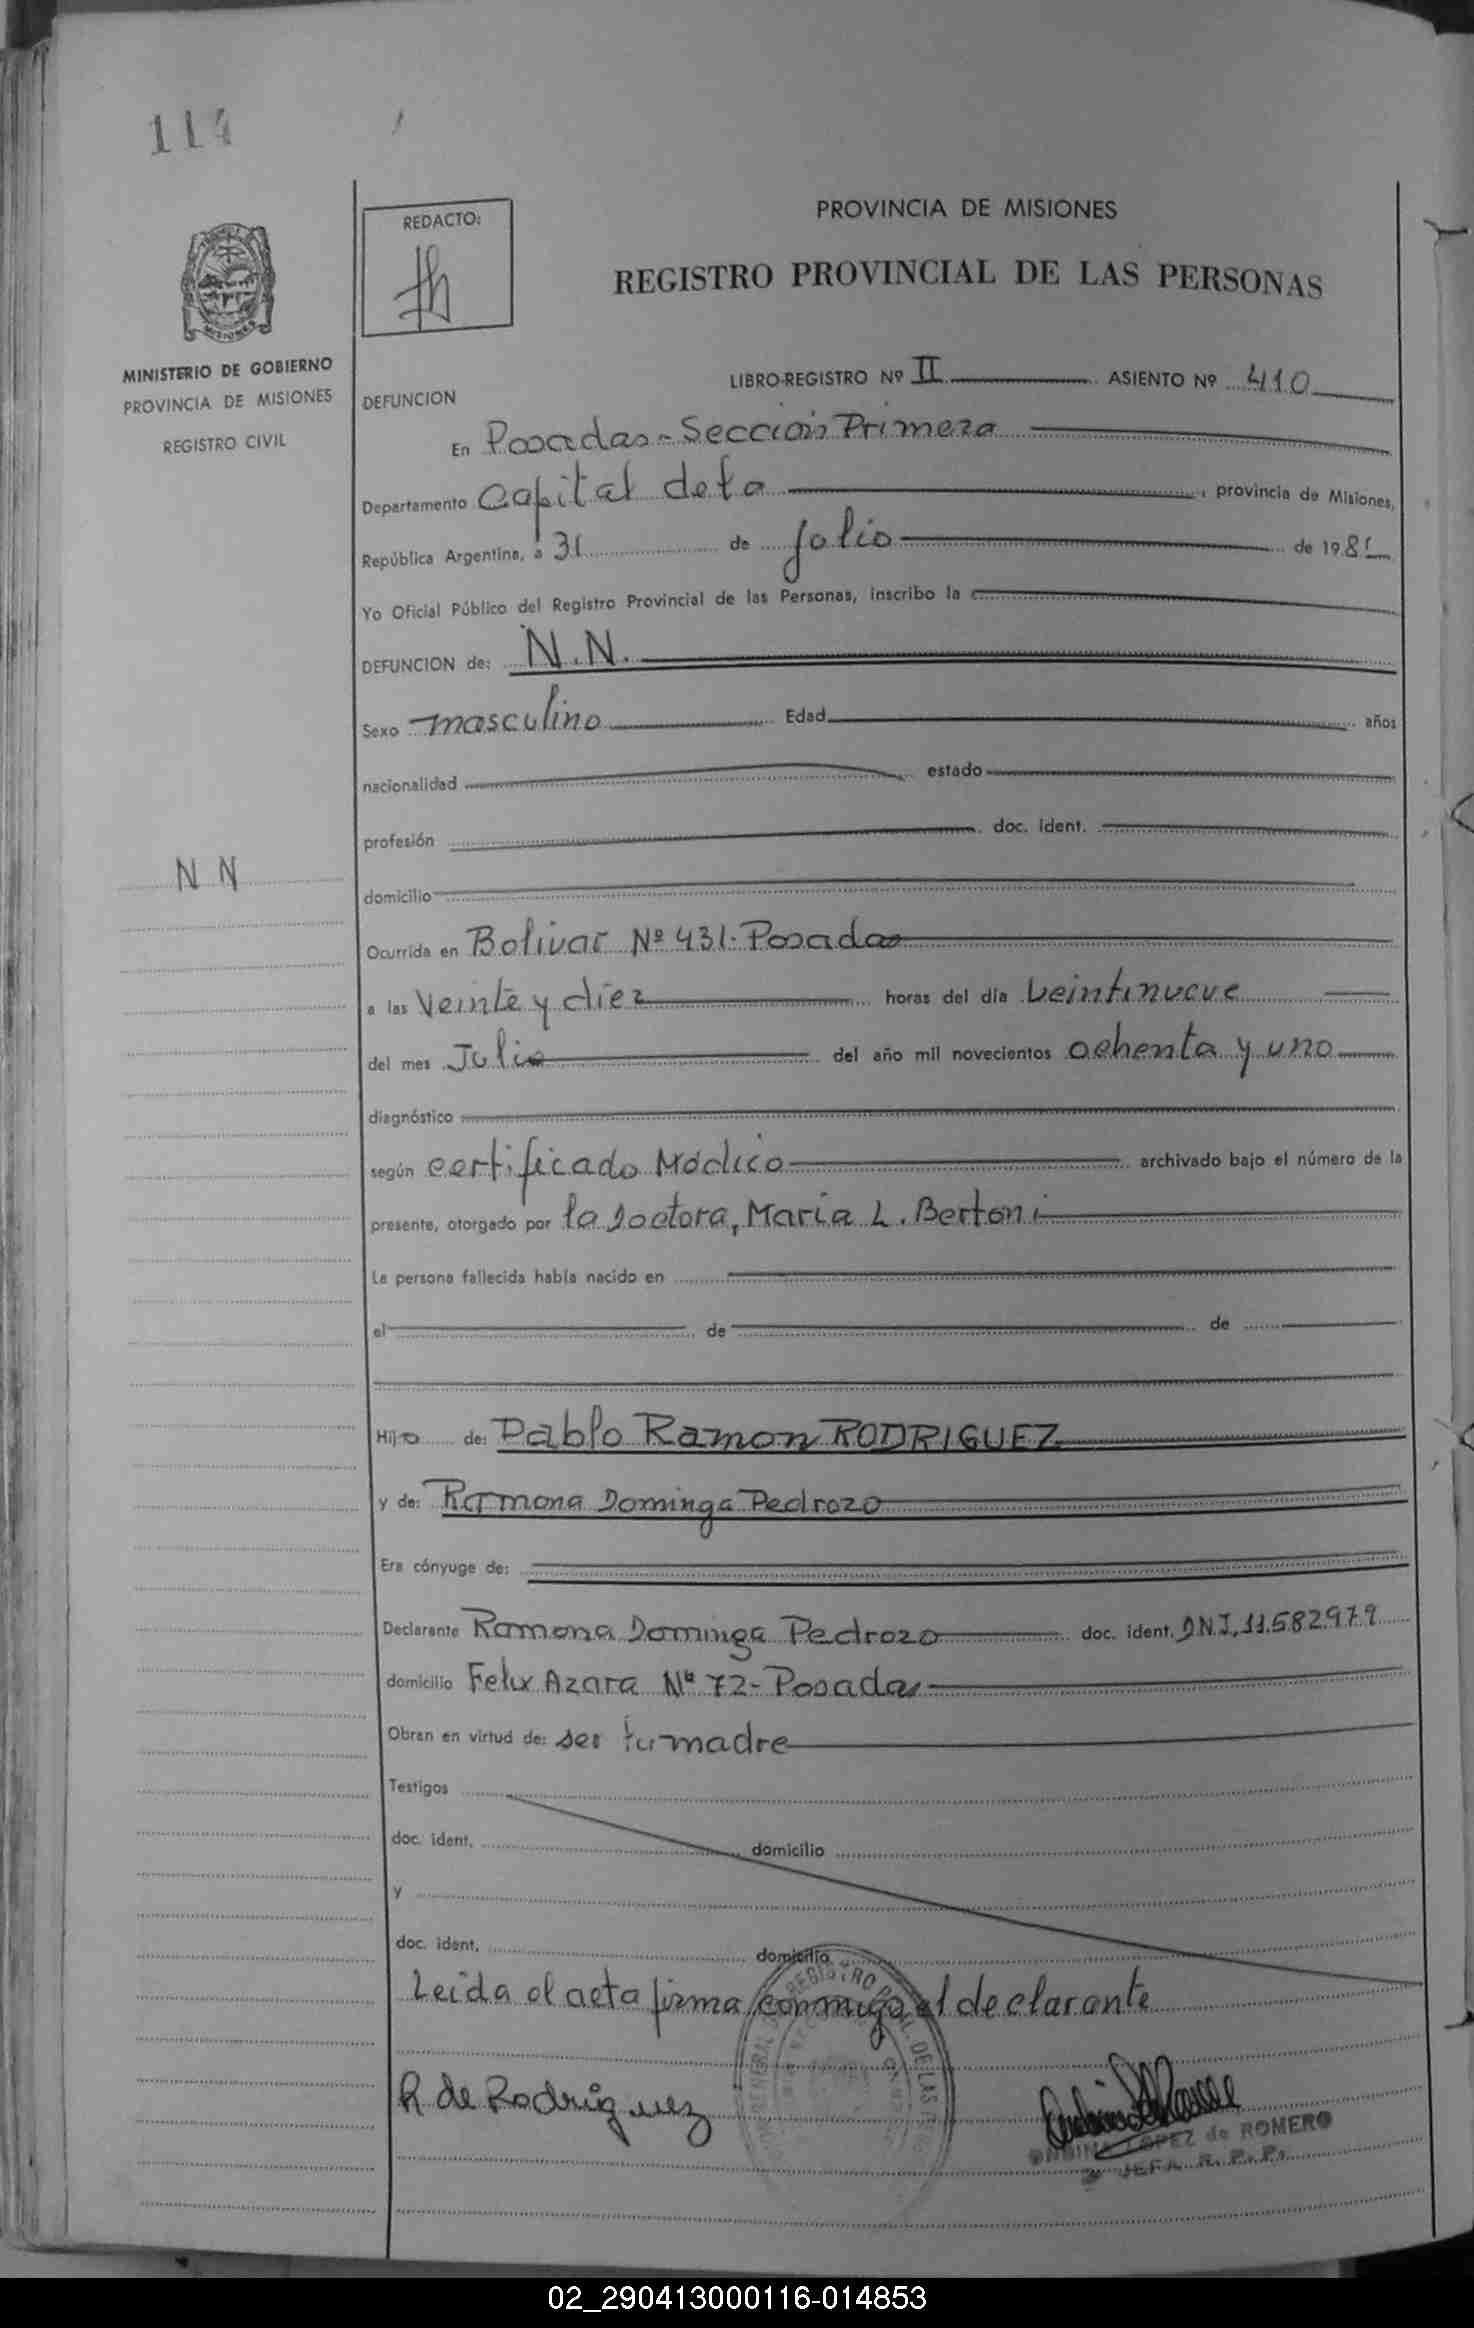 114
REDACTO:
PROVINCIA DE MISIONES
REGISTRO PROVINCIAL DE LAS PERSONAS
MISIONES
MINISTERIO DE GOBIERNO
PROVINCIA DE MISIONES
REGISTRO CIVIL
LIBRO-REGISTRO Nº II ASIENTO Nº 410
DEFUNCION
En Posadas - Sección Primera
Departamento Capital de la provincia de Misiones,
República Argentina, a 31 de Julio de 1981
Yo Oficial Público del Registro Provincial de las Personas, inscribo la
DEFUNCION de: N.N.
Sexo masculino Edad años
nacionalidad estado
profesión doc. ident.
N N
domicilio
Ocurrida en Bolivar Nº 431- Posadas
a las Veinte y diez horas del día Veintinueve
del mes Julio del año mil novecientos ochenta y uno
diagnóstico
según certificado Médico archivado bajo el número de la
presente, otorgado por la Doctora, Maria L. Bertoni
La persona fallecida había nacido en
el de de
Hijo de: Pablo Ramon RODRIGUEZ
y de: Ramona Dominga Pedrozo
Era cónyuge de:
Declarante Ramona Dominga Pedrozo doc. ident. D.N.I. 11.582.979
domicilio Felix Azara Nº 72- Posadas
Obran en virtud de: ser su madre
Testigos
doc. ident. domicilio
y
doc. ident. domicilio
Leida el acta firma conmigo el declarante
R de Rodriguez
LOPEZ de ROMERO
JEFA R. P. P.
02_290413000116-014853